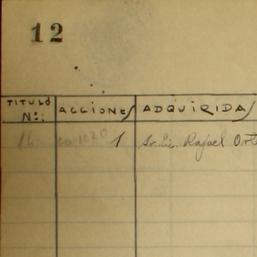 12
TITULO Nº:. ACCIONES ADQUIRIDAS
1 Sr. Lic. Rafael